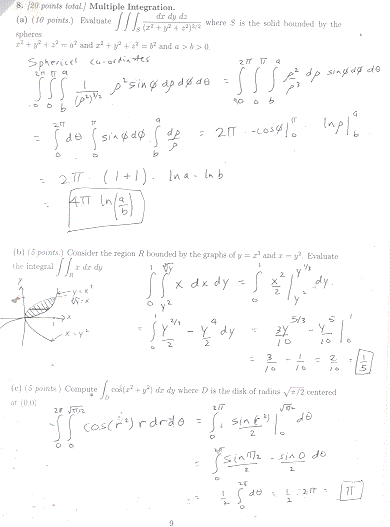 8. [20 points total.] Multiple Integration.
(a) (10 points.) Evaluate ∭_S dx dy dz / (x² + y² + z²)^{3/2} where S is the solid bounded by the
spheres
x² + y² + z² = a² and x² + y² + z² = b² and a > b > 0.
Spherical co-ordinates
∫_0^{2π} ∫_0^π ∫_b^a 1/(ρ²)^{3/2} ρ² sin φ dρ dφ dθ = ∫_0^{2π} ∫_0^π ∫_b^a ρ²/ρ³ dρ sin φ dφ dθ
= ∫_0^{2π} dθ ∫_0^π sin φ dφ ∫_b^a dρ/ρ = 2π -cos φ|_0^π ln ρ|_b^a
= 2π · (1+1) · ln a - ln b
= 4π ln(a/b)
(b) (5 points.) Consider the region R bounded by the graphs of y = x³ and x = y². Evaluate
the integral ∬_R x dx dy
y
y = x³
∛y = x
x
x = y²
∫_0^1 ∫_{y²}^{∛y} x dx dy = ∫_0^1 x²/2 |_{y²}^{y^{1/3}} dy
= ∫_0^1 y^{2/3}/2 - y⁴/2 dy = 3y^{5/3}/10 - y⁵/10 |_0^1
= 3/10 - 1/10 = 2/10 = 1/5
(c) (5 points) Compute ∫_D cos(x² + y²) dx dy where D is the disk of radius √π/2 centered
at (0,0)
∫_0^{2π} ∫_0^{√π/2} cos(r²) r dr dθ = ∫_0^{2π} sin r²/2 |_0^{√π/2} dθ
= ∫_0^{2π} sin π/2 /2 - sin 0/2 dθ
= 1/2 ∫_0^{2π} dθ = 1/2 · 2π = π
9